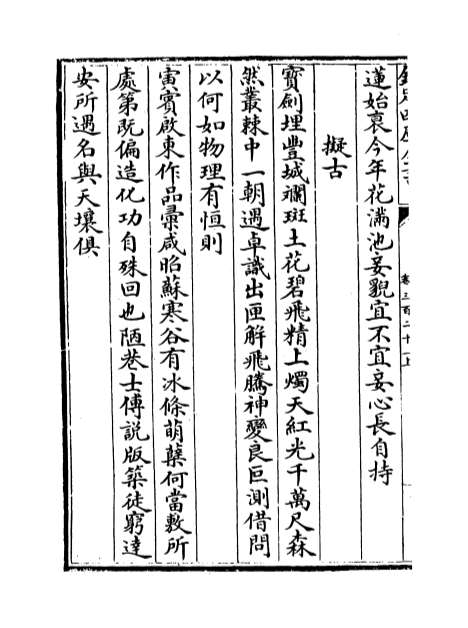 欽定四庫全書
卷三百二十一上
蓮始衰今年花滿池妾貌宜不宜妾心長自持
擬古
寳劍埋豐城斕斑土花碧飛精上燭天紅光千萬尺森
然叢棘中一朝遇卓識出匣解飛騰神變良叵測借問
以何如物理有恒則
寅賓啟東作品彙咸昭蘇寒谷有冰條萌蘖何當敷所
處第既偏造化功自殊回也陋巷士傅説版築徒窮達
安所遇名與天壤俱